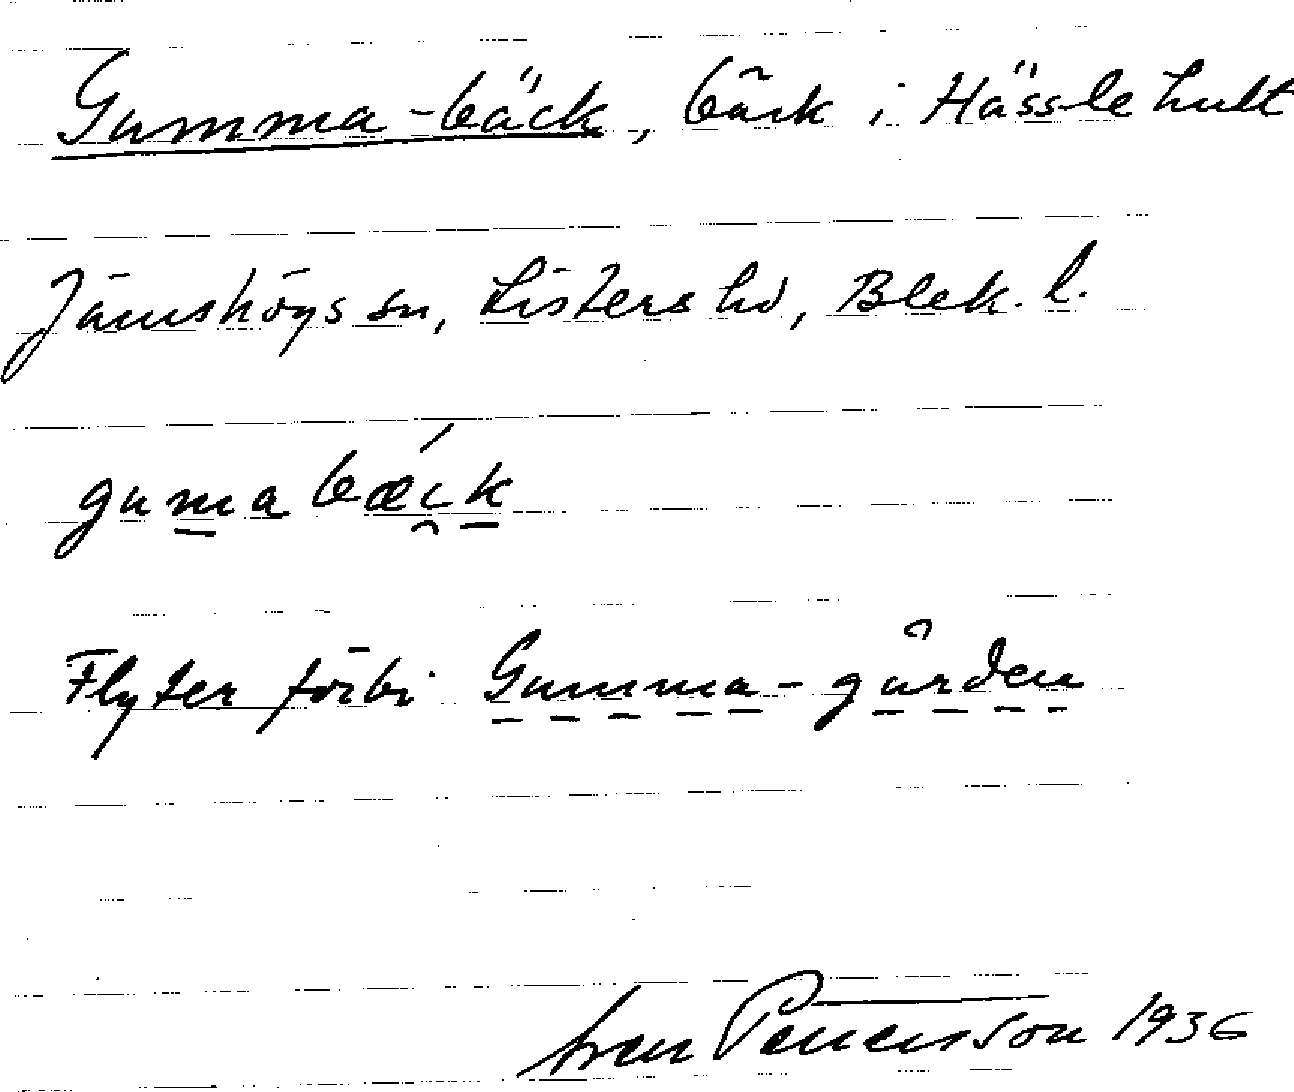 Gumma-bäck, bäck i Hässlehult
Jämshögs sn, Listers hd, Blek. l.
gumabæi̯k
Flyter förbi Gumma-gården
Sven Petersson 1936